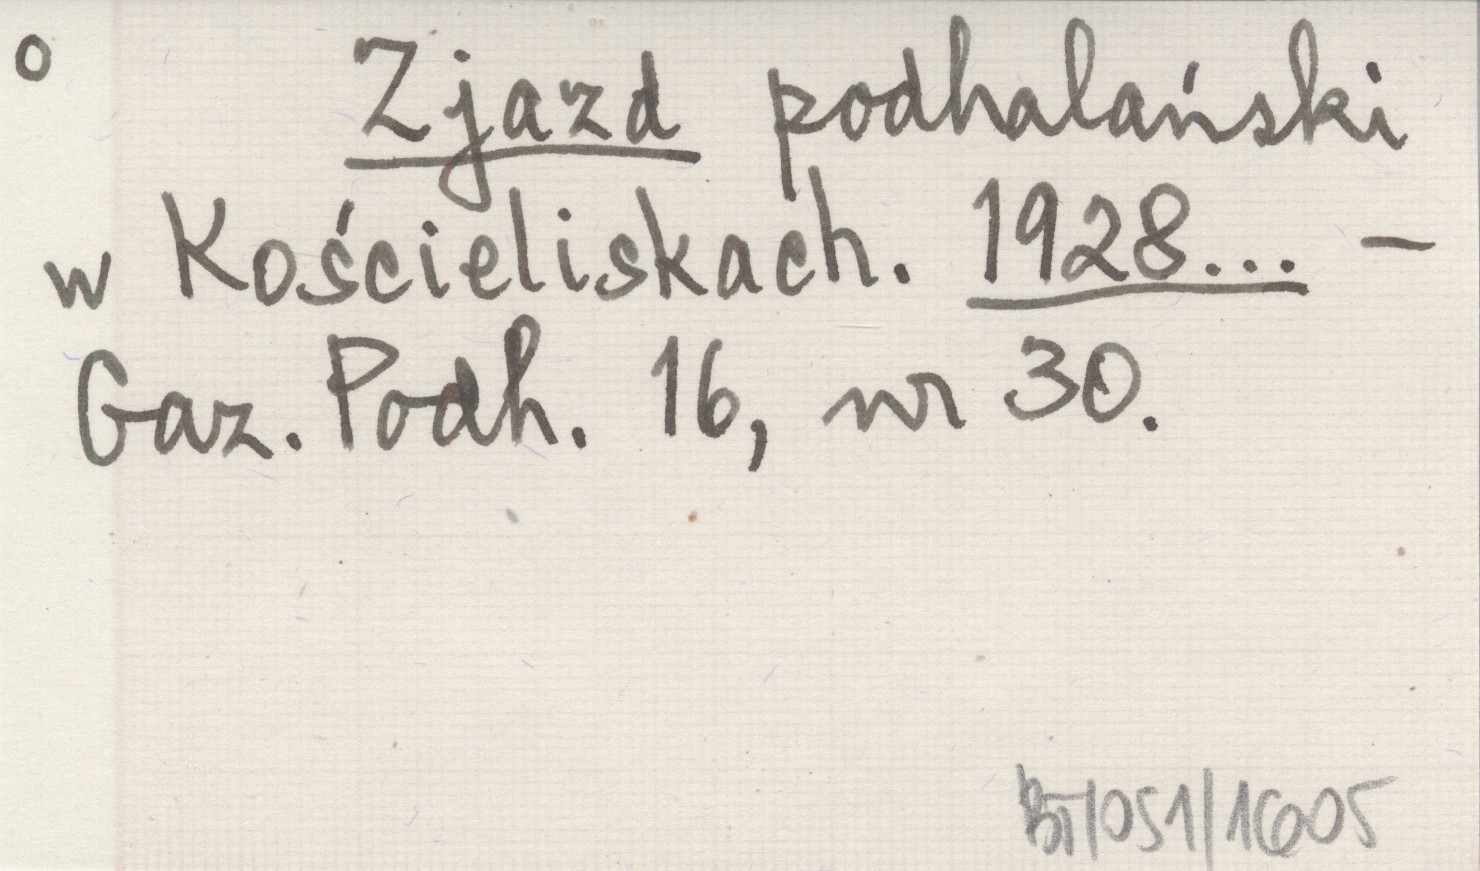 o Zjazd podhalański
w Kościeliskach. 1928... –
Gaz. Podh. 16, nr 30.
BT/051/1605